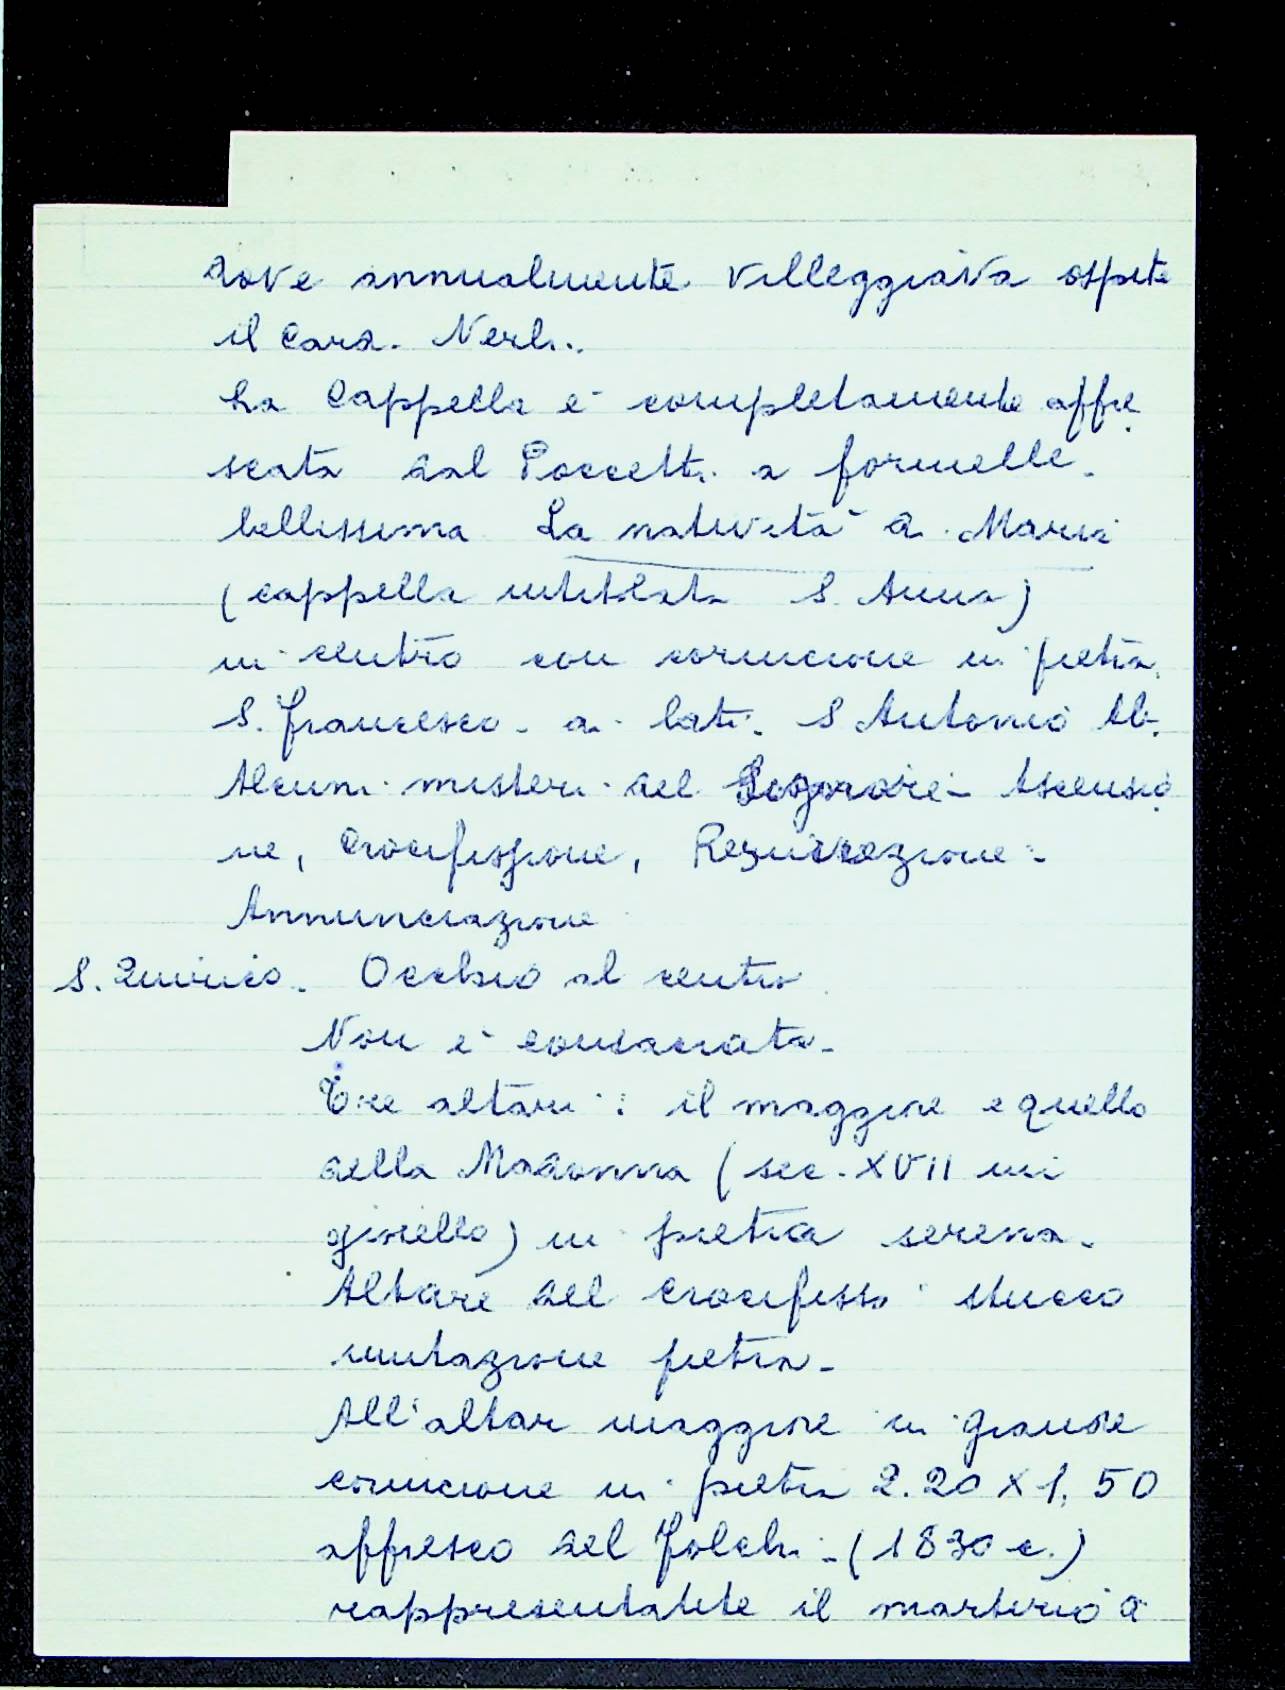 dove annualmente villeggiava ospite
il Card. Nerli.
La Cappella è completamente affre
scata dal Poccetti a formelle.
bellissima La natività di Maria
(cappella intitolata S. Anna)
in centro con cornicione in pietra,
S. Francesco - ai lati. S Antonio Ab.
Alcuni misteri del Signore - Ascensio
ne, Crocifissione, Resurrezione -
Annunciazione
S. Quirico. Occhio al centro
Non è consacrata -
Tre altari: il maggiore e quello
della Madonna (sec. XVII un
gioiello) in pietra serena.
Altare del Crocifisso stucco
imitazione pietra -
All'altar maggiore in grande
cornicione in pietra 2.20 X 1,50
affresco del Folchi - (1830 c.)
rappresentante il martirio di